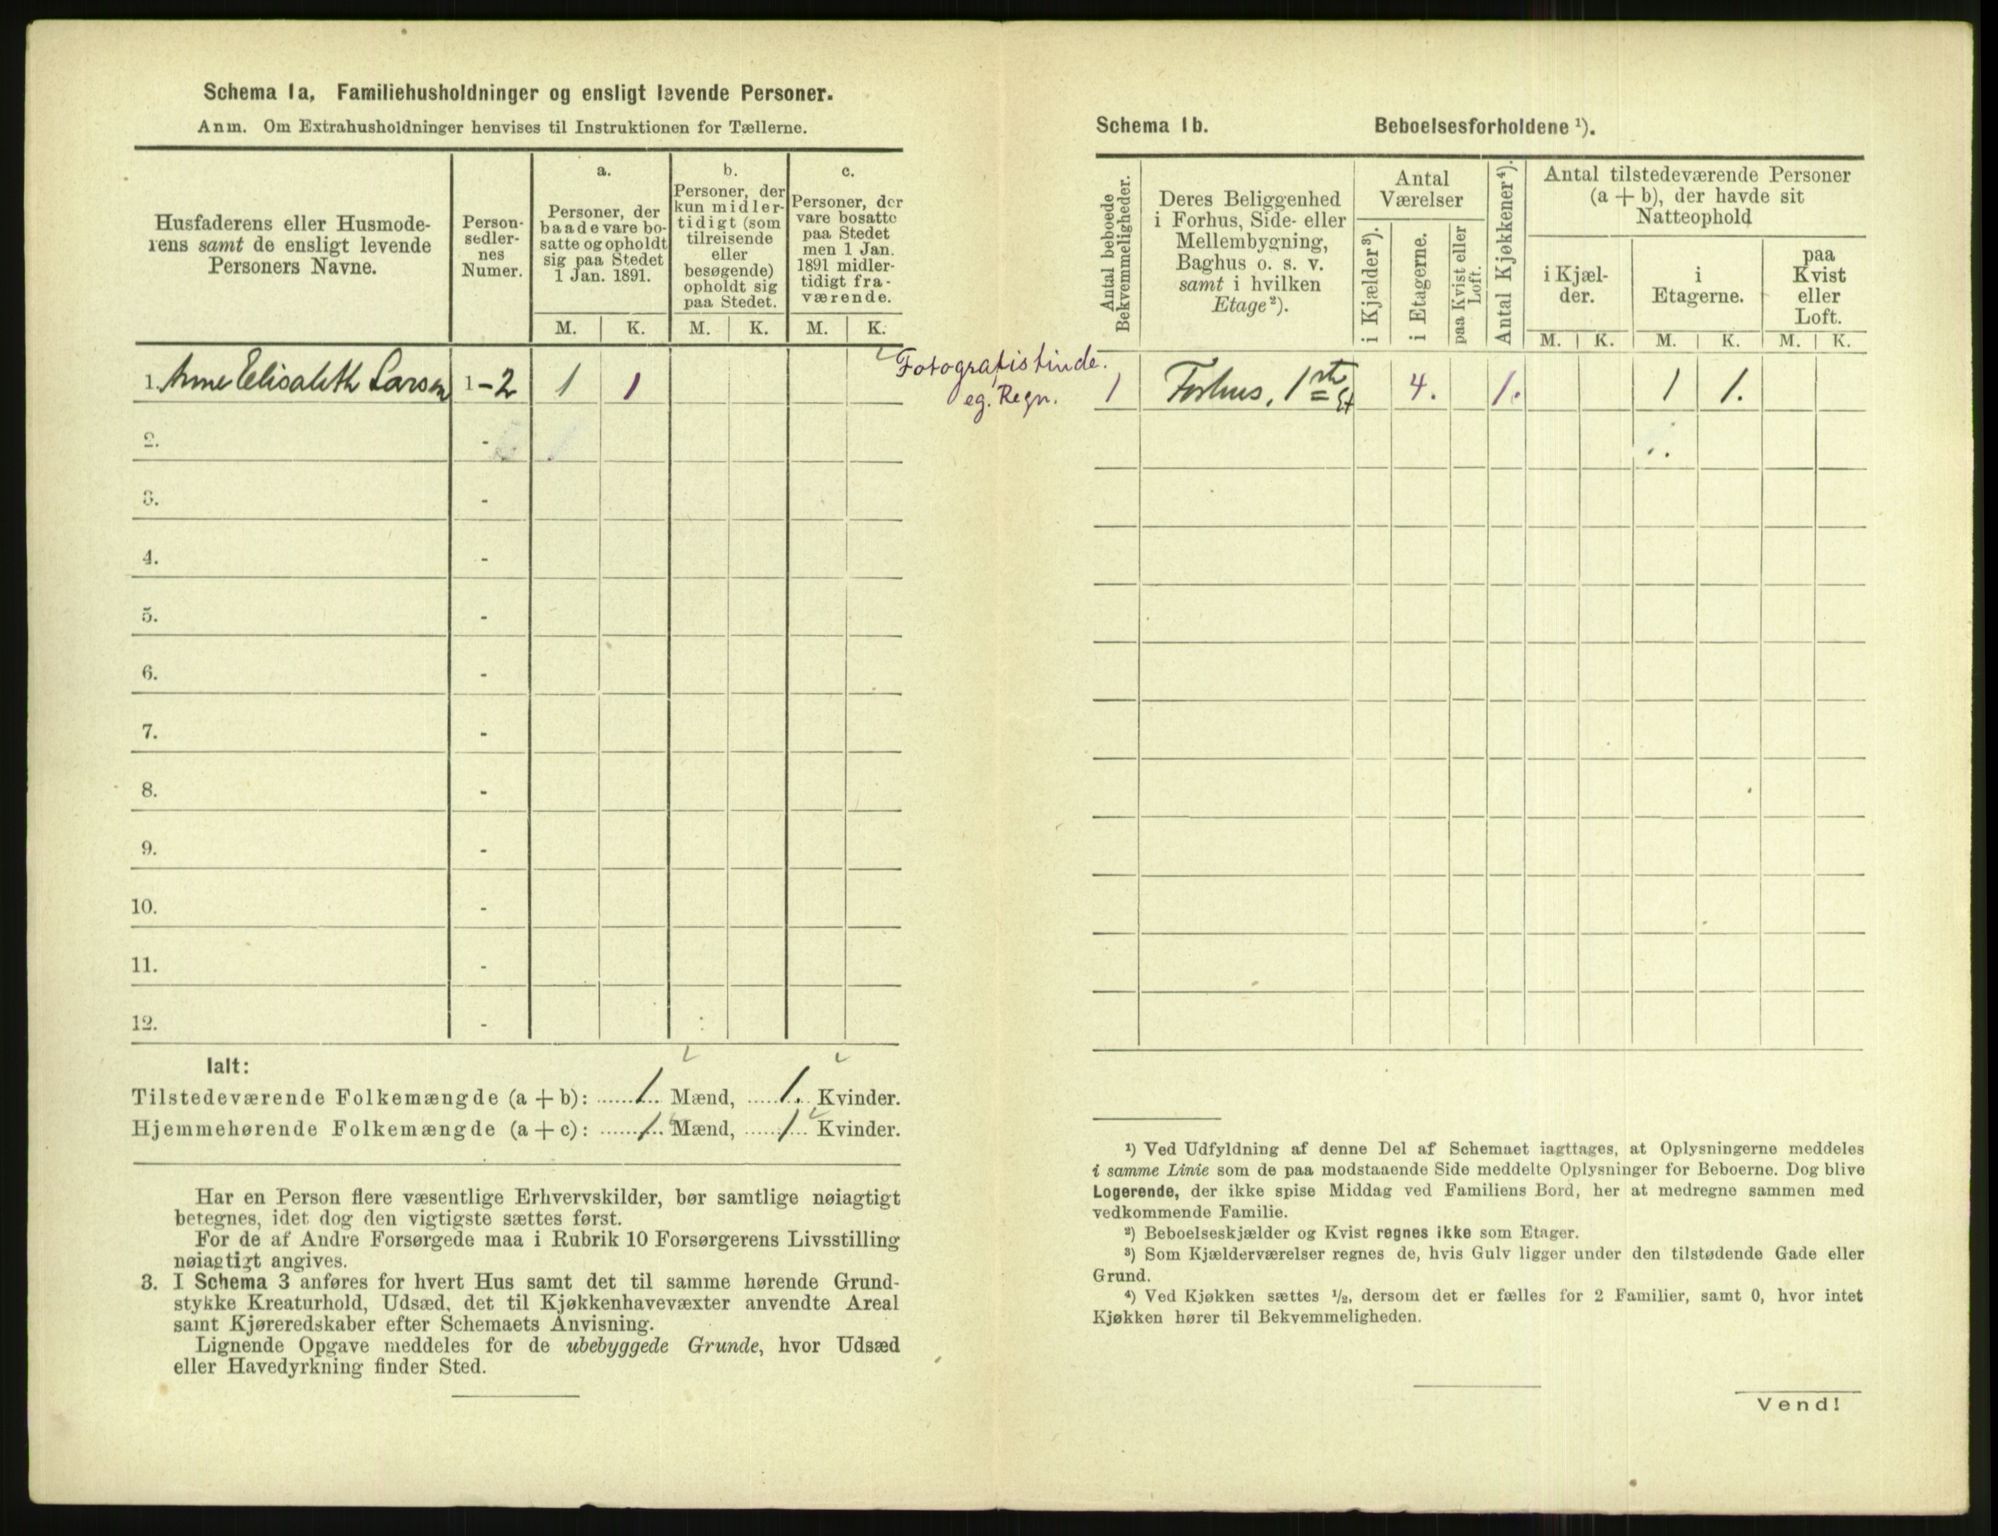 Schema 1a. Familiehusholdninger og ensligt levende Personer.
Anm. Om Extrahusholdninger henvises til Instruktionen for Tællerne.
Husfaderens eller Husmode-
rens samt de ensligt levende
Personers Navne.
Person-
sedler-
nes
Numer.
a.
Personer, der
baade vare bo-
satte og opholdt
sig paa Stedet
1 Jan. 1891.
b.
Personer, der
kun midler-
tidigt (som
tilreisende
eller
besøgende)
opholdt sig
paa Stedet.
c.
Personer, der
vare bosatte
paa Stedet
men 1 Jan.
1891 midler-
tidigt fra-
værende.
M. K. M. K. M. K.
1. Anne Elisabeth Larsen 1-2 1 1
2. -
3. -
4. -
5. -
6. -
7. -
8. -
9. -
10. -
11. -
12. -
Ialt:
Tilstedeværende Folkemængde (a + b): 1. Mænd, 1. Kvinder.
Hjemmehørende Folkemængde (a + c): 1. Mænd, 1. Kvinder.
Har en Person flere væsentlige Erhvervskilder, bør samtlige nøiagtigt
betegnes, idet dog den vigtigste sættes først.
For de af Andre Forsørgede maa i Rubrik 10 Forsørgerens Livsstilling
nøiagtigt angives.
3. I Schema 3 anføres for hvert Hus samt det til samme hørende Grund-
stykke Kreaturhold, Udsæd, det til Kjøkkenhavevæxter anvendte Areal
samt Kjøreredskaber efter Schemaets Anvisning.
Lignende Opgave meddeles for de ubebyggede Grunde, hvor Udsæd
eller Havedyrkning finder Sted.
Schema 1b. Beboelsesforholdene ¹).
Antal beboede
Bekvemmeligheder.
Deres Beliggenhed
i Forhus, Side- eller
Mellembygning,
Baghus o. s. v.
samt i hvilken
Etage²).
Antal
Værelser
i Kjælder³).
i Etagerne.
paa Kvist eller
Loft.
Antal Kjøkkener⁴).
Antal tilstedeværende Personer
(a + b), der havde sit
Natteophold
i Kjæl-
der.
i
Etagerne.
paa
Kvist
eller
Loft.
M. K. M. K. M. K.
Fotografistinde.
eg. Regn.
1 Forhus, 1ste Et 4. 1. 1 1.
¹) Ved Udfyldning af denne Del af Schemaet iagttages, at Oplysningerne meddeles
i samme Linie som de paa modstaaende Side meddelte Oplysninger for Beboerne. Dog blive
Logerende, der ikke spise Middag ved Familiens Bord, her at medregne sammen med
vedkommende Familie.
²) Beboelseskjælder og Kvist regnes ikke som Etager.
³) Som Kjælderværelser regnes de, hvis Gulv ligger under den tilstødende Gade eller
Grund.
⁴) Ved Kjøkken sættes ½, dersom det er fælles for 2 Familier, samt 0, hvor intet
Kjøkken hører til Bekvemmeligheden.
Vend!